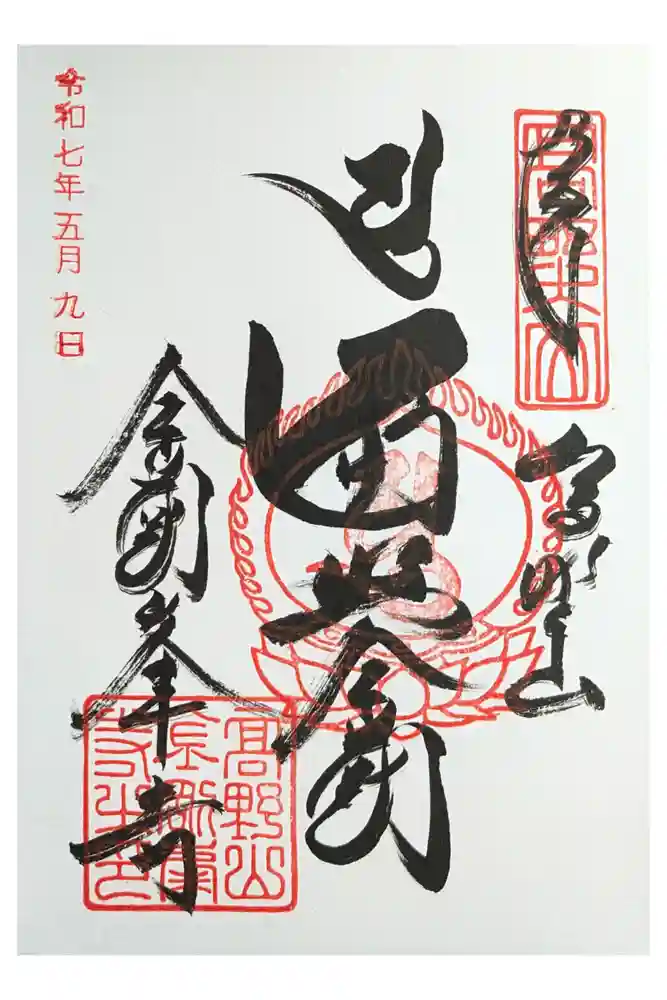 高野山
遍照金剛
金剛峯寺
令和七年五月九日
高野山
金剛峯
寺之印